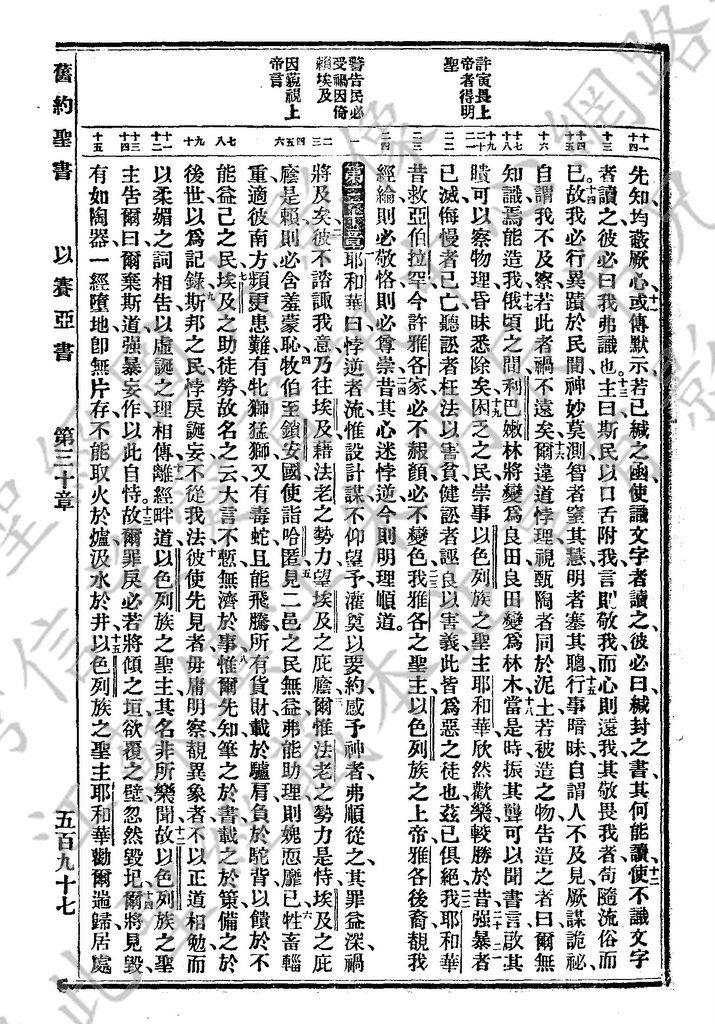 許寅畏上
帝者得明
聖
警告民必
受禍因倚
賴埃及
因藐視上
帝言
先知均蔽厥心或傳默示若已緘之函使識文字者讀之彼必曰緘封之書其何能讀使不識文字
者讀之彼必曰我弗識也主曰斯民以口舌附我言則敬我而心則遠我其敬畏我者苟隨流俗而
已故我必行異蹟於民間神妙莫測智者窒其慧明者塞其聰行事暗昧自謂人不及見厥謀詭祕
自謂我不及察若此者禍不遠矣爾違道悖理視甄陶者同於泥土若被造之物告造之者曰爾無
知識焉能造我俄頃之間利巴嫩林將變爲良田良田變爲林木當是時振其聾可以聞書言啟其
瞶可以察物理昏昧悉除矣困乏之民崇事以色列族之聖主耶和華欣然歡樂較勝於昔強暴者
已滅侮慢者已亡聽訟者枉法以害貧健訟者誣良以害義此皆爲惡之徒也茲已俱絕我耶和華
昔救亞伯拉罕今許雅各家必不赧顏必不變色我雅各之聖主以色列族之上帝雅各後裔覩我
經綸則必敬恪則必尊崇昔其心迷悖逆今則明理順道
第三十章 耶和華曰悖逆者流惟設計謀不仰望予灌奠以要約感予神者弗順從之其罪益深禍
將及矣彼不諮諏我意乃往埃及藉法老之勢力望埃及之庇廕爾惟法老之勢力是恃埃及之庇
廕是賴則必含羞蒙恥牧伯至鎖安國使詣哈匿見二邑之民無益弗能助理則媿恧靡已牲畜輜
重適彼南方類更患難有牝獅猛獅又有毒蛇且能飛騰所有貨財載於驢肩負於駝背以饋於不
能益己之民埃及之助徒勞故名之云大言不慙無濟於事惟爾先知筆之於書載之於策備之於
後世以爲記錄斯邦之民悖戾誕妄不從我法彼使先見者毋庸明察覩異象者不以正道相勉而
以柔媚之詞相告以虛誕之理相傳離經畔道以色列族之聖主其名非所樂聞故以色列族之聖
主告爾曰爾棄斯道强暴妄作以此自恃故爾罪戾必若將傾之垣欲覆之壁忽然毀圯爾將見毀
有如陶器一經墮地卽無片存不能取火於爐汲水於井以色列族之聖主耶和華勸爾遄歸居處
舊約聖書 以賽亞書 第三十章 五百九十七